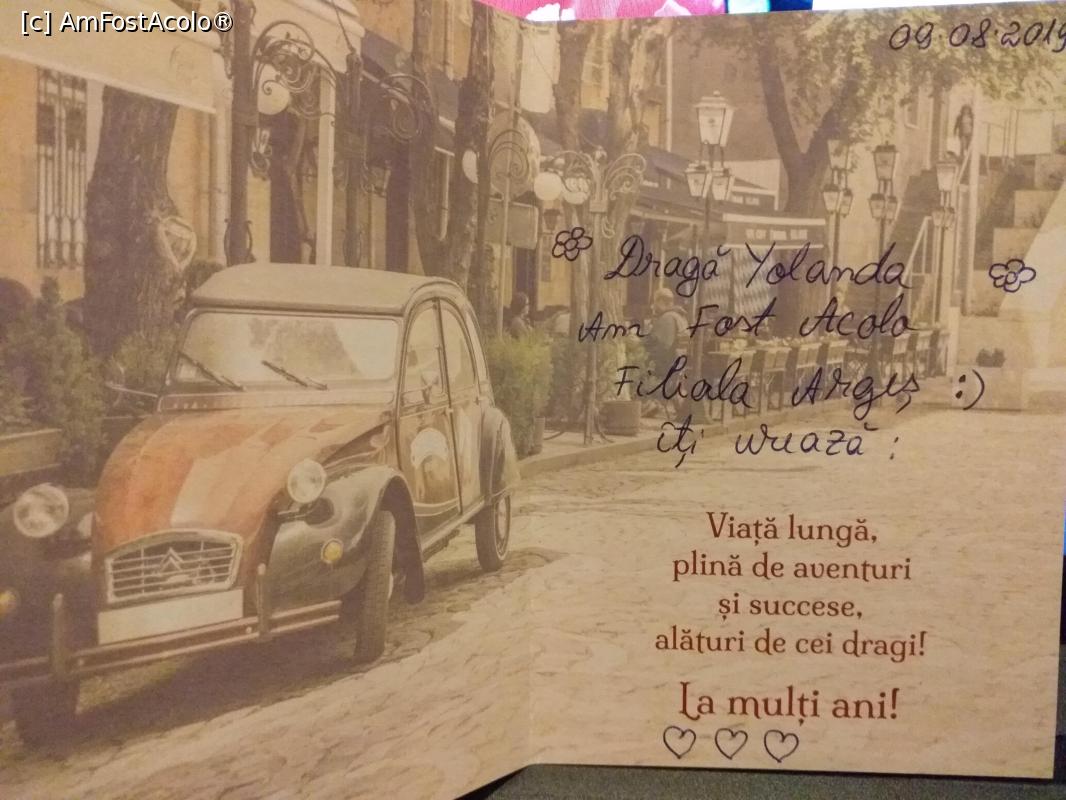 [c] AmFostAcolo®
09.08.2019
Dragă Yolanda
Am Fost Acolo
Filiala Argeș :)
îți urează :
Viață lungă,
plină de aventuri
și succese,
alături de cei dragi!
La mulți ani!